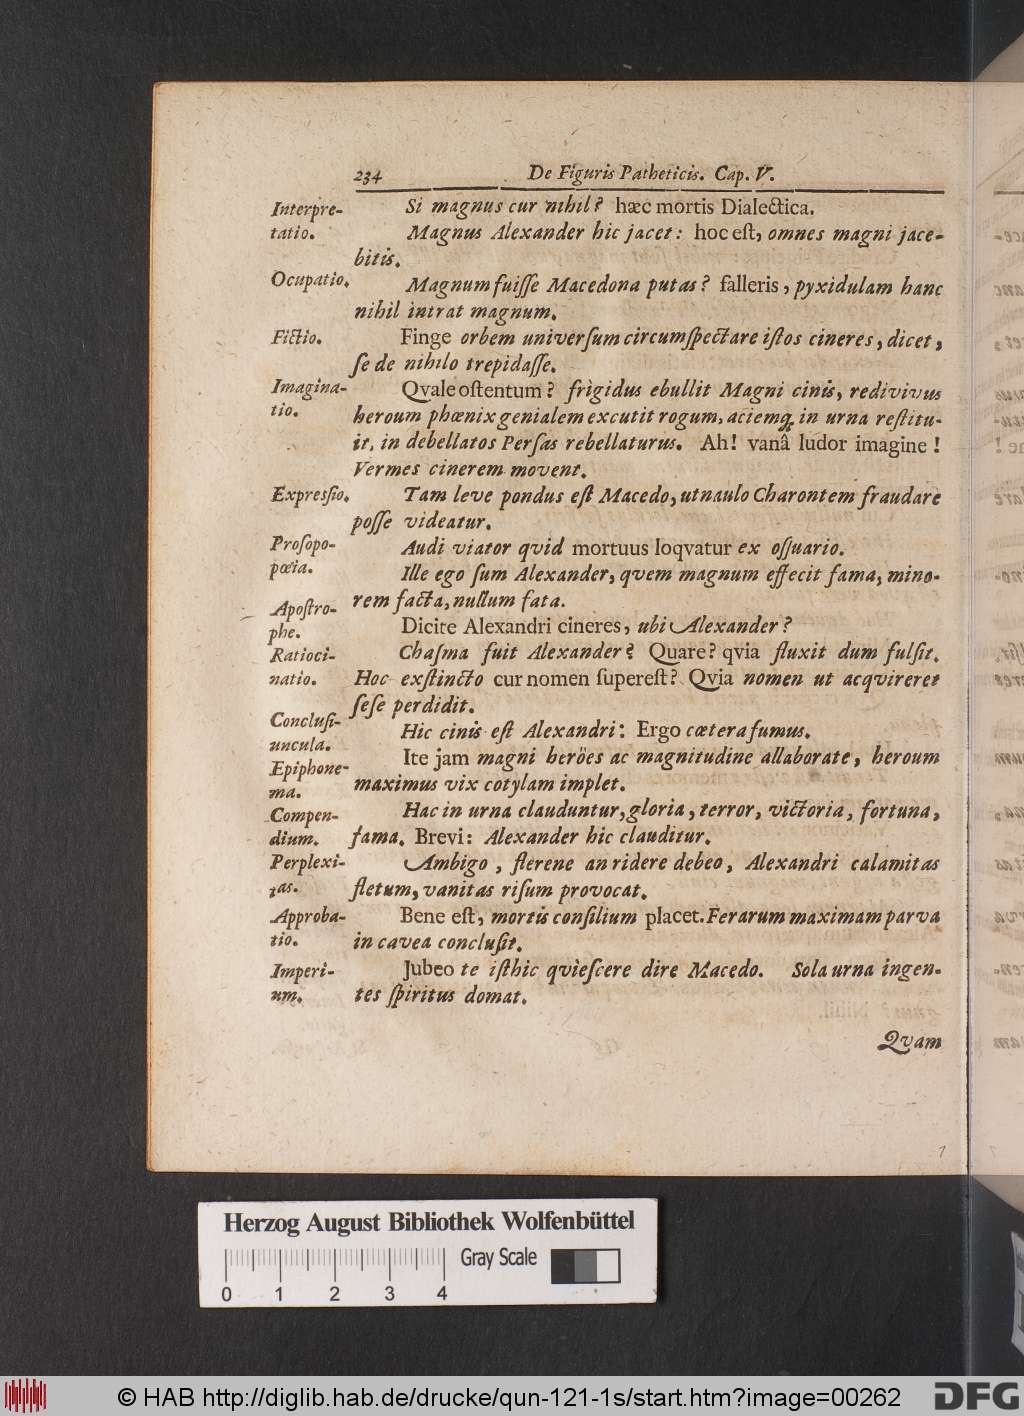 234 De Figuris Patheticis. Cap. V.
Si magnus cur nihil? hæc mortis Dialectica.
Interpre-
tatio.
Magnus Alexander hic jacet: hoc eſt, omnes magni jace-
bitis.
Ocupatio.
Magnum fuiſſe Macedona putas? falleris, pyxidulam hanc
nihil intrat magnum.
Fictio.
Finge orbem univerſum circumſpectare iſtos cineres, dicet,
ſe de nihilo trepidaſſe.
Imagina-
tio.
Qvale oſtentum? frigidus ebullit Magni cinis, redivivus
heroum phœnix genialem excutit rogum, aciemq; in urna reſtitu-
it, in debellatos Perſas rebellaturus. Ah! vanâ ludor imagine!
Vermes cinerem movent.
Expreſſio.
Tam leve pondus eſt Macedo, ut naulo Charontem fraudare
poſſe videatur.
Proſopo-
pœia.
Audi viator qvid mortuus loqvatur ex oſſuario.
Ille ego ſum Alexander, qvem magnum effecit fama, mino-
rem facta, nullum fata.
Apoſtro-
phe.
Dicite Alexandri cineres, ubi Alexander?
Ratioci-
natio.
Chaſma fuit Alexander? Quare? qvia fluxit dum fulſit.
Hoc exſtincto cur nomen ſupereſt? Qvia nomen ut acqvireret
ſeſe perdidit.
Concluſi-
uncula.
Hic cinis eſt Alexandri: Ergo cætera fumus.
Epiphone-
ma.
Ite jam magni heröes ac magnitudine allaborate, heroum
maximus vix cotylam implet.
Compen-
dium.
Hac in urna clauduntur, gloria, terror, victoria, fortuna,
fama. Brevi: Alexander hic clauditur.
Perplexi-
tas.
Ambigo, flerene an ridere debeo, Alexandri calamitas
fletum, vanitas riſum provocat.
Approba-
tio.
Bene eſt, mortis conſilium placet. Ferarum maximam parva
in cavea concluſit.
Imperi-
um.
Jubeo te iſthic qvieſcere dire Macedo. Sola urna ingen-
tes ſpiritus domat.
Qvam
Herzog August Bibliothek Wolfenbüttel
Gray Scale
0 1 2 3 4
© HAB http://diglib.hab.de/drucke/qun-121-1s/start.htm?image=00262
DFG